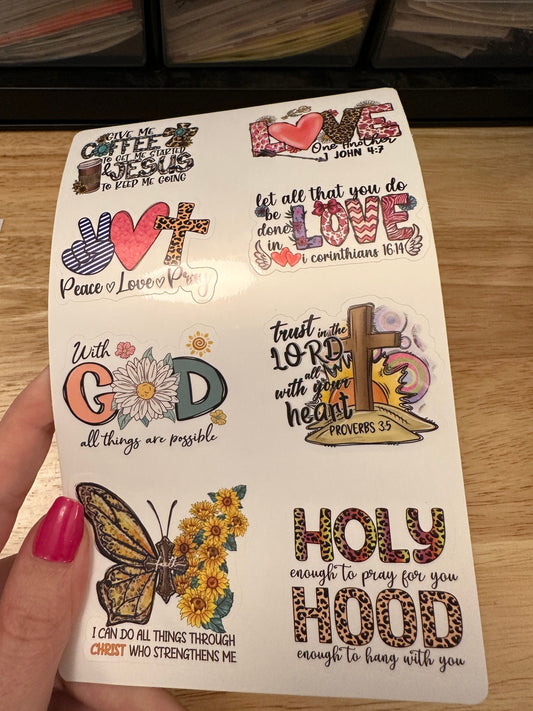 GIVE ME
COFFEE
TO GET ME STARTED
& JESUS
TO KEEP ME GOING
LOVE
One Another
1 JOHN 4:7
Peace Love Pray
let all that you do
be
done
in
LOVE
1 corinthians 16:14
With
GOD
all things are possible
trust in the
LORD
all
with your
heart
PROVERBS 3:5
faith
I CAN DO ALL THINGS THROUGH
CHRIST WHO STRENGTHENS ME
HOLY
enough to pray for you
HOOD
enough to hang with you